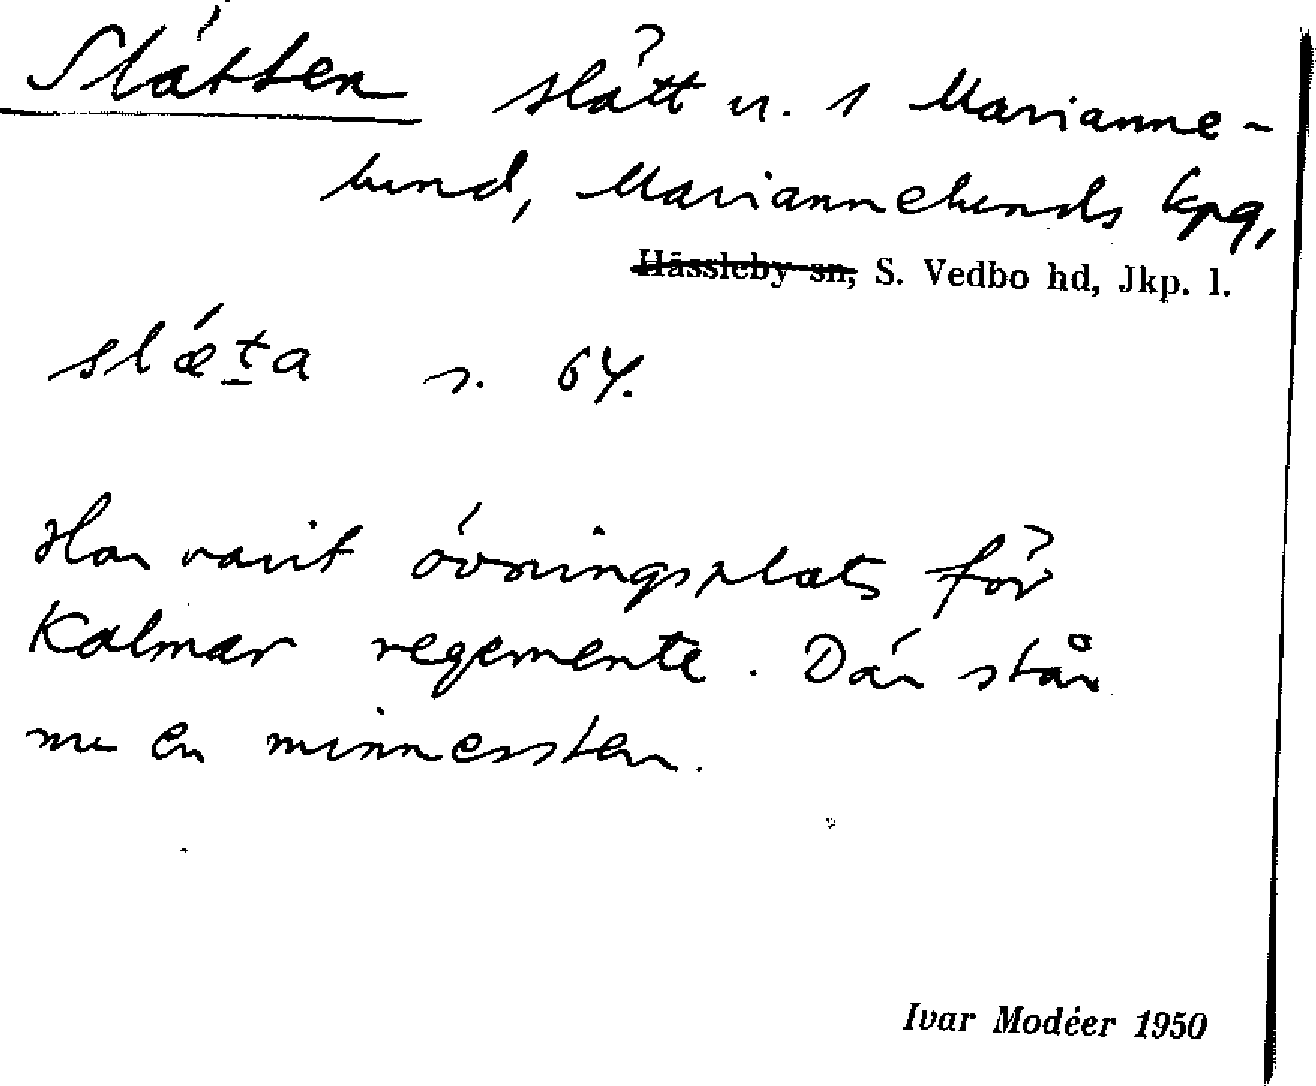 Slätten slätt n. 1 Marianne-
lund, Mariannelunds kpg,
Hässleby sn, S. Vedbo hd, Jkp. l.
slǽta s. 64.
Har varit övningsplats för
Kalmar regemente. Där står
nu en minnessten.
Ivar Modéer 1950